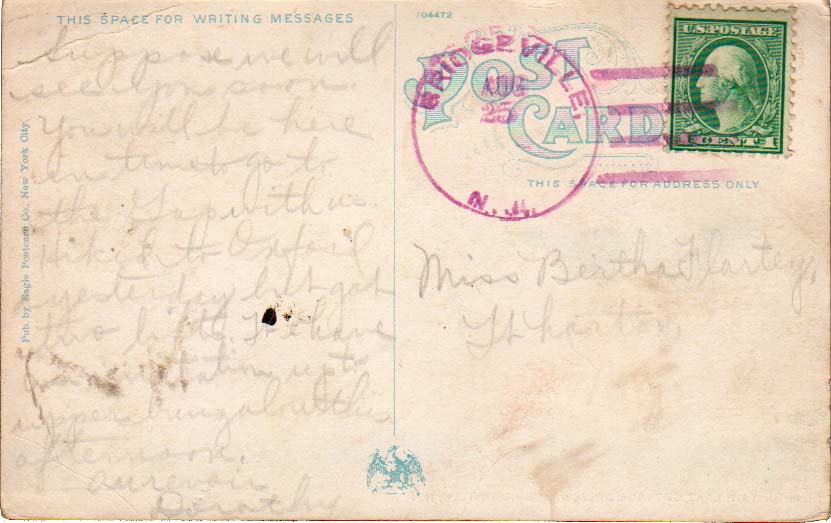 THIS SPACE FOR WRITING MESSAGES
Suppose we will
see you soon.
You will be here
in time to go to
the Gap with us.
Hiked to Oxford
yesterday but got
two lifts. We have
an invitation up to
upper bungalow this
afternoon.
au revoir
Dorothy
Pub. by Eagle Postcard Co., New York City.
104472
POST CARD
BRIDGEVILLE,
AUG
25
N.J.
U.S. POSTAGE
1 CENTS 1
THIS SPACE FOR ADDRESS ONLY
Miss Bertha Flartey,
Wharton,